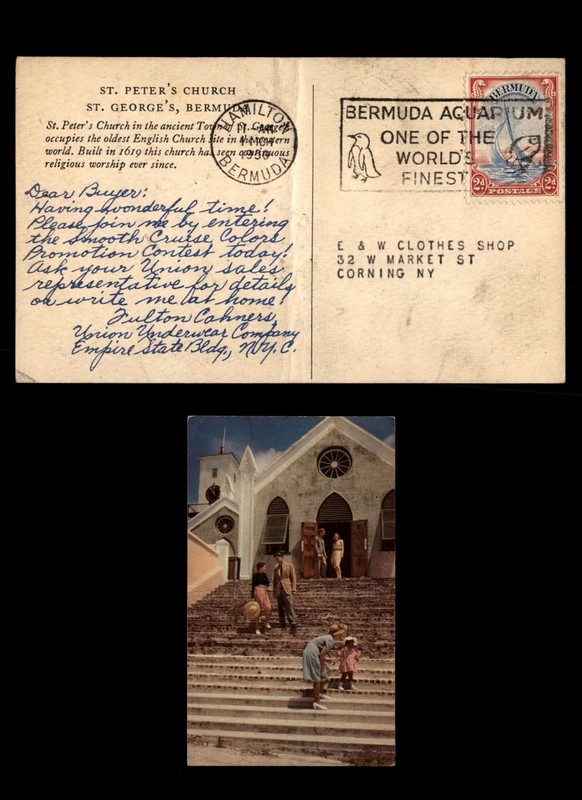 ST. PETER'S CHURCH
ST. GEORGE'S, BERMUDA
St. Peter's Church in the ancient Town of St. George
occupies the oldest English Church Site in the Western
world. Built in 1619 this church has seen continuous
religious worship ever since.
HAMILTON
11 AM
MCH
1950
BERMUDA
BERMUDA AQUARIUM
ONE OF THE
WORLD'S
FINEST
BERMUDA
2d 2d
POSTAGE
Dear Buyer:
Having wonderful time!
Please join me by entering
the Smooth Cruise Colors
Promotion Contest today!
Ask your Union sales
representative for details
or write me at home!
Fulton Cahners,
Union Underwear Company
Empire State Bldg., N.Y.C.
E & W CLOTHES SHOP
32 W MARKET ST
CORNING NY